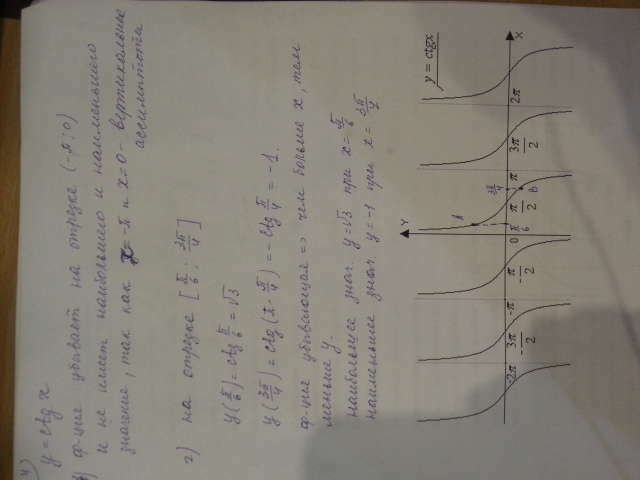 4)
y = ctg x
в) ф-ция убывает на отрезке (-π; 0)
и не имеет наибольшего и наименьшего
значение, так как x = -π и x = 0 - вертикальные
ассимптота
г) на отрезке [π/6 ; 3π/4]
y(π/6) = ctg π/6 = √3
y(3π/4) = ctg(π - π/4) = -ctg π/4 = -1.
ф-ция убывающая => чем больше x, тем
меньше y.
наибольшее знач. y = √3 при x = π/6
наименьшее знач. y = -1 при x = 3π/4
y = ctgx
Y
X
A
B
-2π
-3π/2
-π
-π/2
0
π/6
π/2
3π/4
π
3π/2
2π